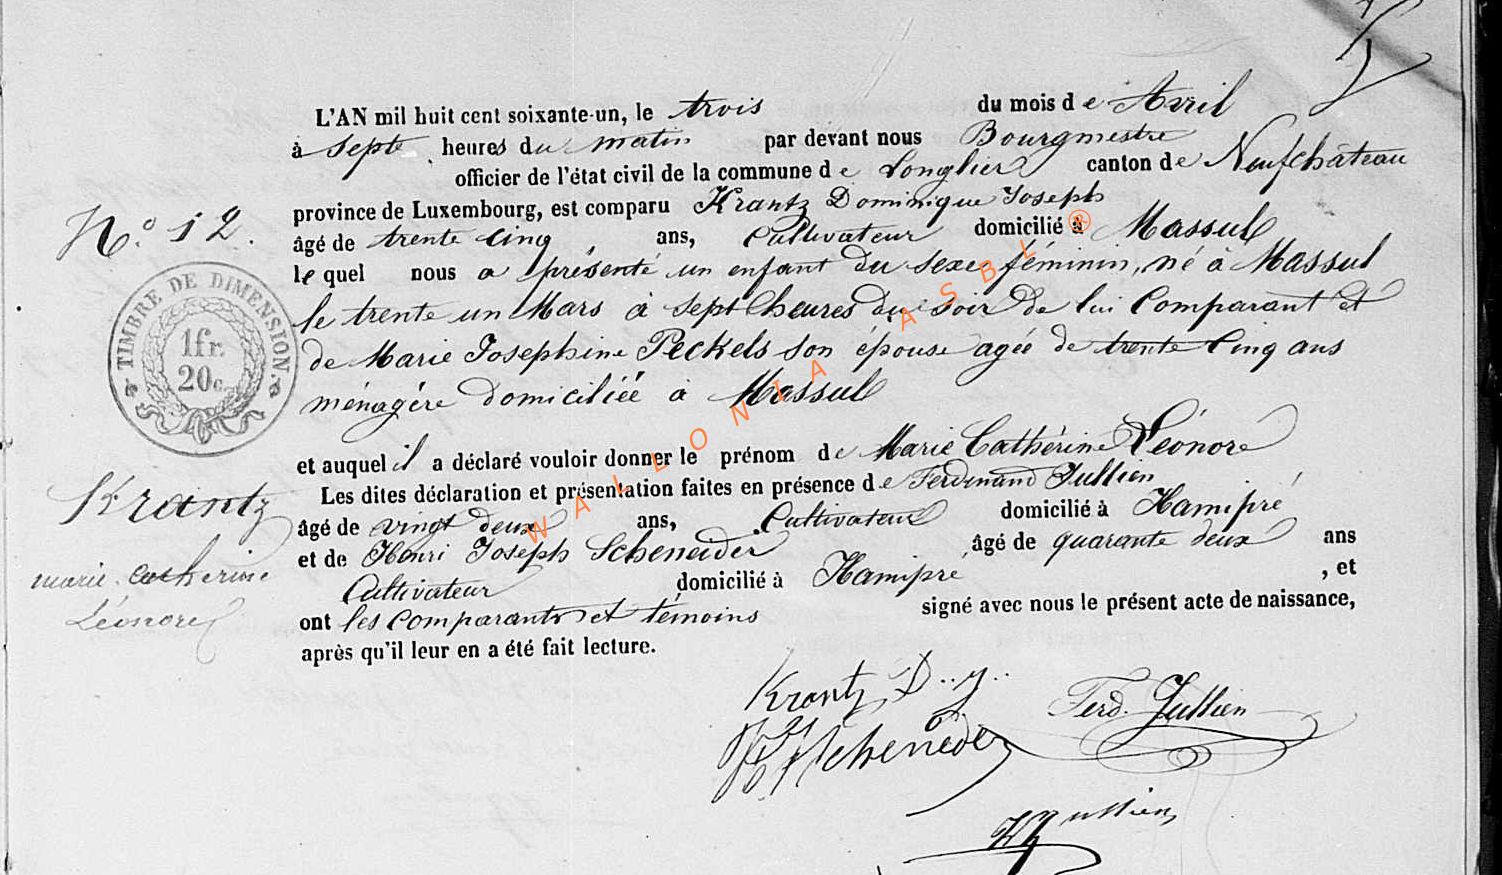 L'AN mil huit cent soixante-un, le trois du mois de Avril
à Septe heures du matin par dévant nous Bourgmestre
officier de l'état civil de la commune de Longlier canton de Neufchâteau
province de Luxembourg, est comparu Krantz Dominique Joseph
N° 12.
âgé de trente cinq, ans, Cultivateur domicilié à Massul
lequel nous a présenté un enfant du sexe féminin, né à Massul
le trente un Mars à sept heures du soir de lui Comparant et
de Marie Josephine Peckels son épouse agée de trente Cinq ans
ménagère domiciliée à Massul
TIMBRE DE DIMENSION.
1fr.
20c.
et auquel il a déclaré vouloir donner le prénom de Marie Cathérine Léonore
Les dites déclaration et présentation faites en présence de Ferdinand Jullien
âgé de vingt deux ans, Cultivateur domicilié à Hamipré
et de Henri Joseph Scheneider âgé de quarante deux ans
Cultivateur domicilié à Hamipré, et
ont les comparants et témoins signé avec nous le présent acte de naissance,
après qu'il leur en a été fait lecture.
Krantz
marie catherine
Léonore
Krantz D. J.
Ferd. Jullien
Scheneider
Jullien
WALLONIA ASBL ®